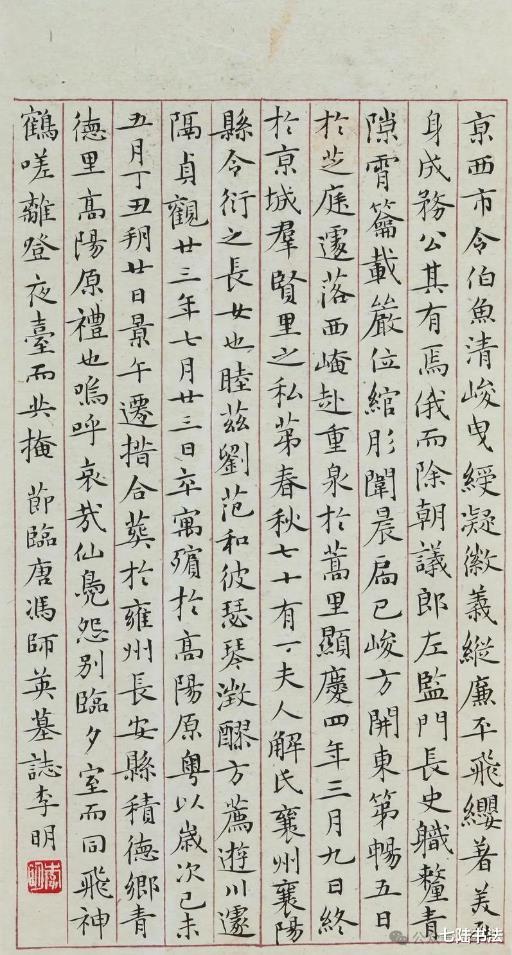 京西市令伯魚清峻曳綬凝徽義縱廉平飛纓著美
身成務公其有焉俄而除朝議郎左監門長史職釐青
隙霄籥載嚴位綰彤闈晨扃已峻方開東第暢五日
於芝庭遽落西崦赴重泉於蒿里顯慶四年三月九日終
於京城羣賢里之私第春秋七十有一夫人解氏襄州襄陽
縣令衍之長女也睦茲劉范和彼瑟琴澂醪方薦遊川遽
隔貞觀廿三年七月廿三日卒寓殯於高陽原粵以歲次己未
五月丁丑朔廿日景午遷措合葬於雍州長安縣積德鄉青
德里高陽原禮也嗚呼哀哉仙鳧怨別臨夕室而同飛神
鶴嗟離登夜臺而共掩 節臨唐馮師英墓誌李明
李明
七陆书法